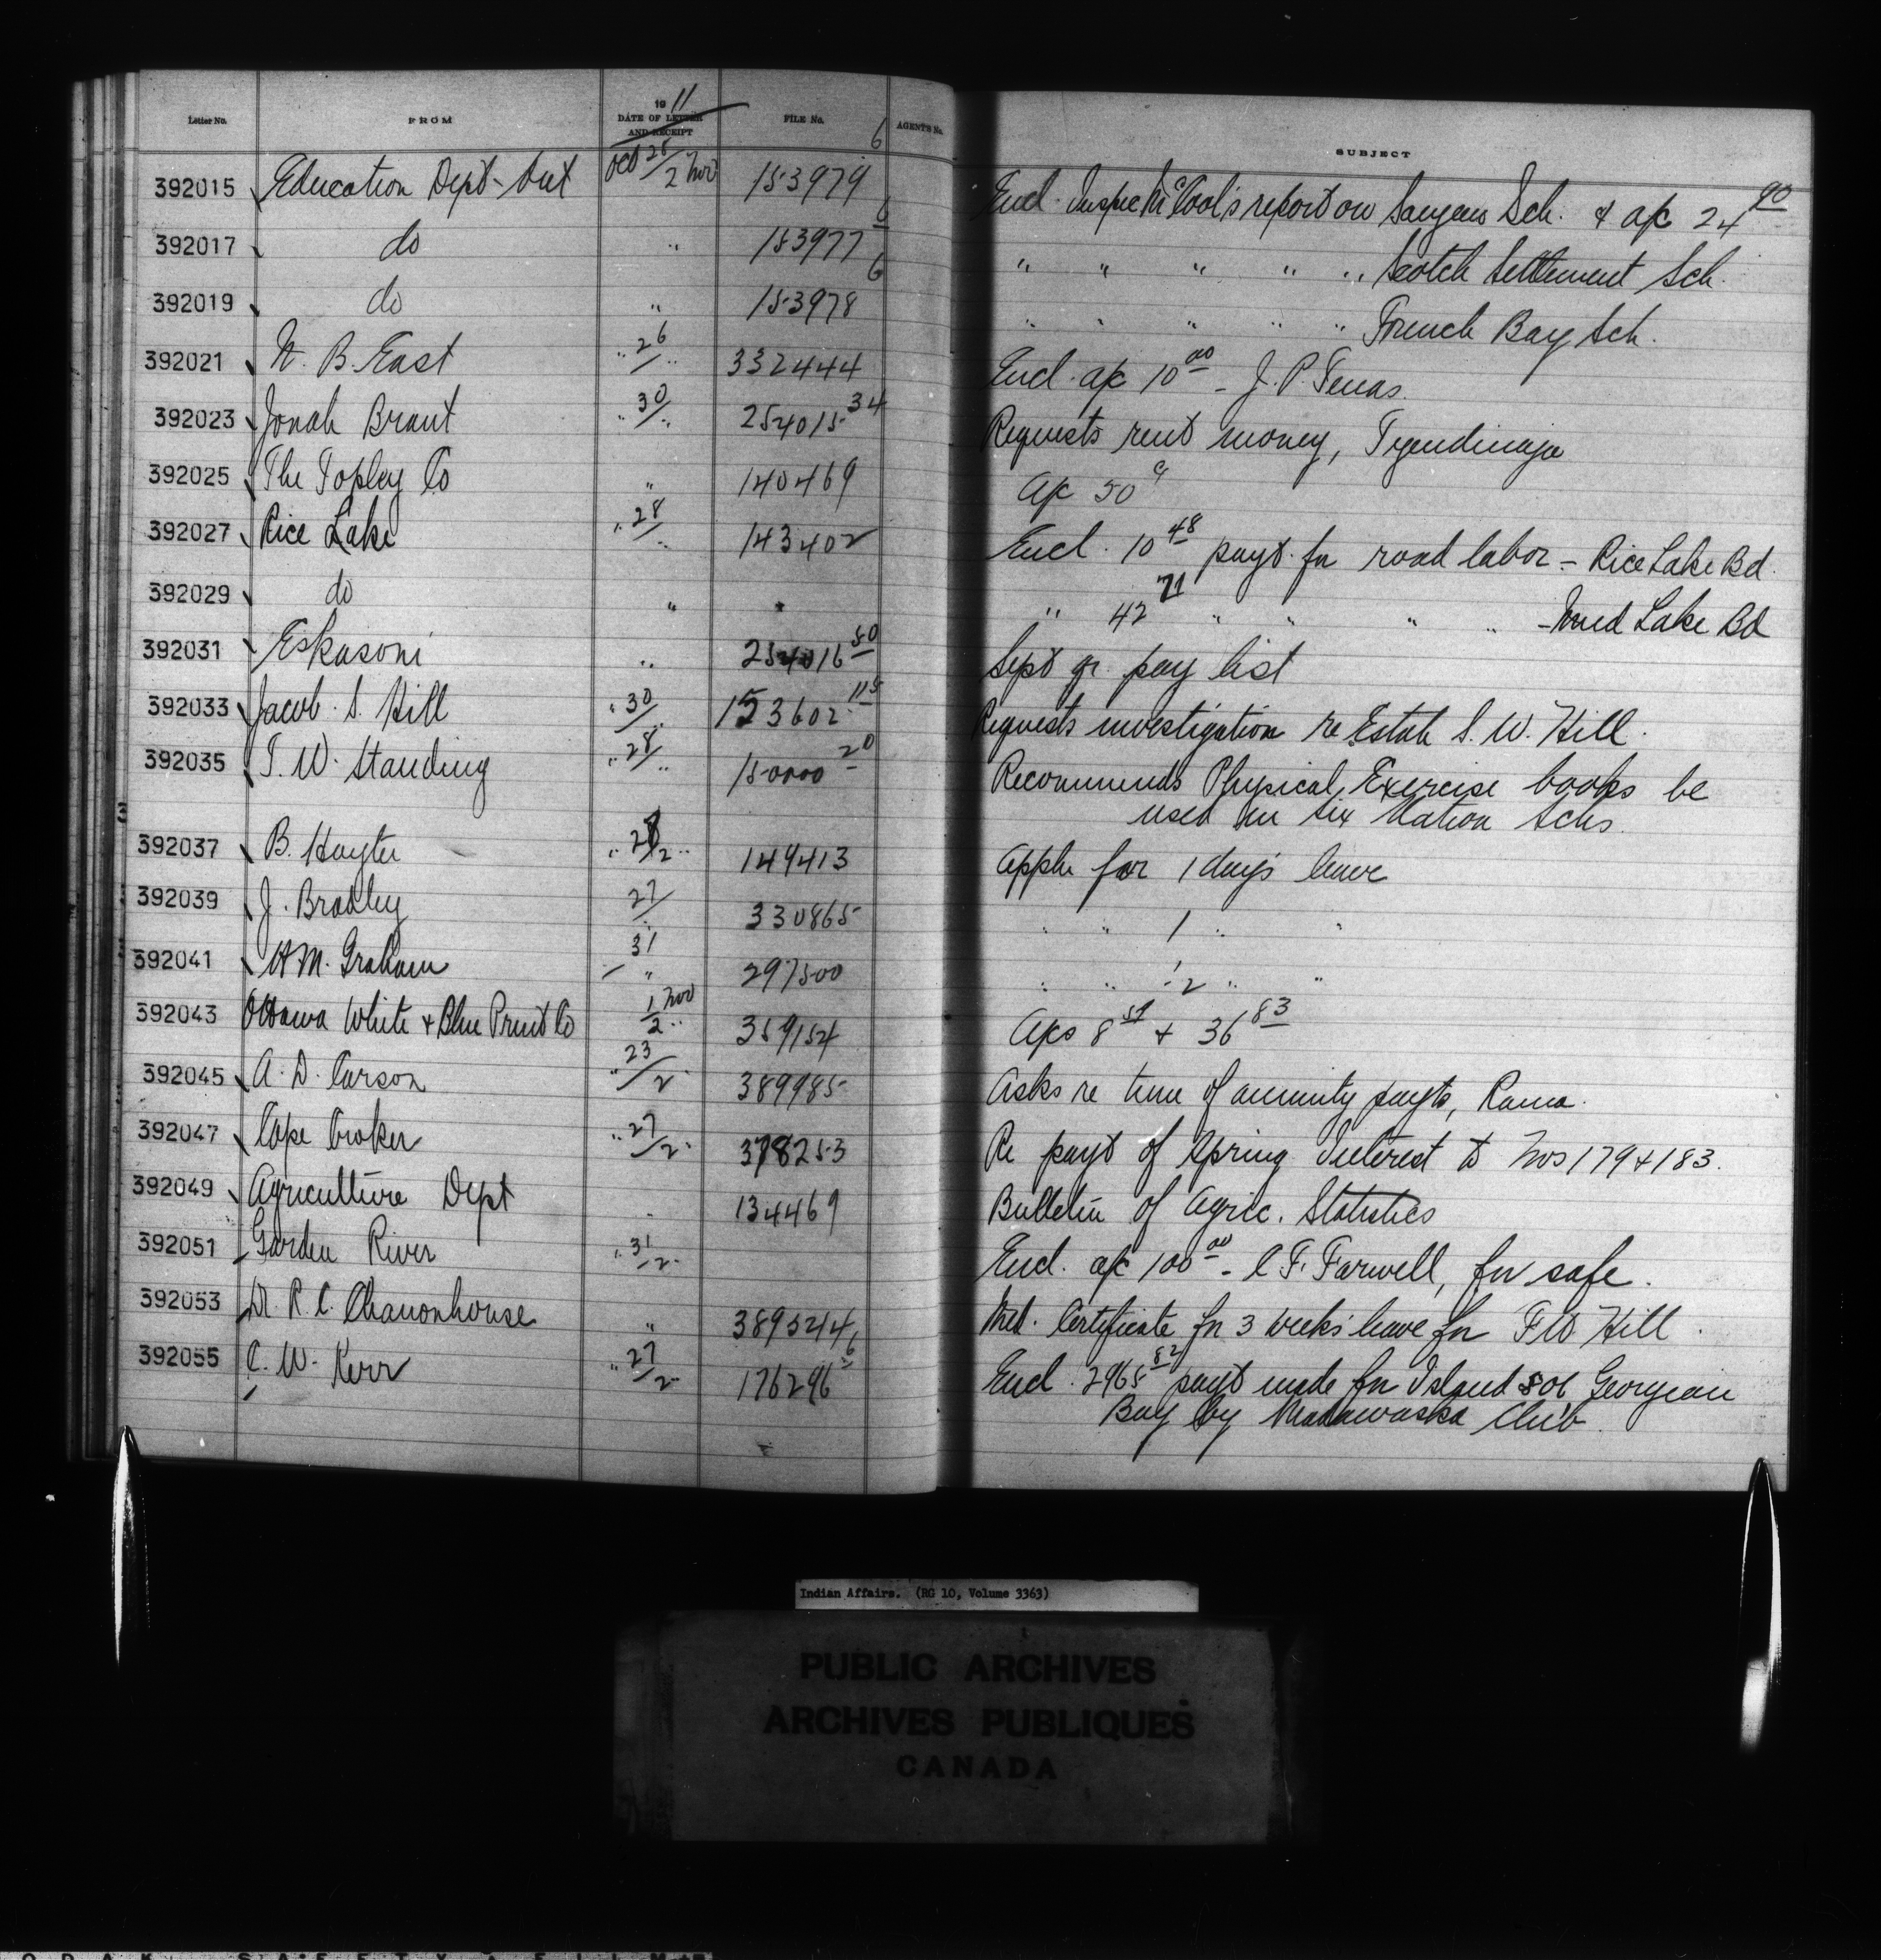 Letter No. FROM 1911 DATE OF LETTER AND RECEIPT FILE No. AGENTS No. SUBJECT
392015 Education Dept - Ont Oct 28/2 Nov 153979 6 Encl. Inspec McCool's report on Saugeen Sch. & a/c 24 90
392017 do " 153977 6 " " " " " Scotch Settlement Sch.
392019 do " 153978 6 " " " " " French Bay Sch.
392021 N. B. East " 26/" 332444 Encl. a/c 10 00 - J. P.
392023 Jonah Brant " 30/" 254015 34 Requests rent money, Tyendinaga
392025 The Topley Co " 140469 a/c 50 c
392027 Rice Lake " 28/" 143402 Encl. 10 48 payt. for road labor - Rice Lake Bd.
392029 do " " " 42 71 " " " " - Mud Lake Bd
392031 Eskasoni " 254016 50 Sept qr. pay list
392033 Jacob S. Hill " 30/" 153602 115 Requests investigation re Estate S. W. Hill.
392035 T. W. Standing " 28/" 150000 20 Recommends Physical Exercise books be
used in Six Nation Schs.
392037 B. Hayter " 28/2 " 149413 Appln for 1 days leave
392039 J. Bradley 27/" 330865 " " 1 " "
392041 H M. Graham 31 " 297500 " " 1/2 " "
392043 Ottawa White & Blue Print Co 1 Nov/2 " 359154 a/cs 8 51 & 36 83
392045 A. D. Carson " 23/2 " 389985 Asks re time of annuity payts, Rama.
392047 Cape Croker " 27/2 " 378253 Re payt of Spring Interest to Nos 179 & 183.
392049 Agriculture Dept " 134469 Bulletin of Agric. Statistics
392051 Garden River " 31/2 " Encl. a/c 100 00 - C. F. Farwell, for safe.
392053 Dr. R. C. " 389524 Med. Certificate for 3 weeks' leave for F W. Hill.
392055 C. W. Kerr " 27/2 " 176296 6 Encl. 2965 82 payt made for Island 506 Georgian
Bay by Madawaska Club
Indian Affairs. (RG 10, Volume 3363)
PUBLIC ARCHIVES
ARCHIVES PUBLIQUES
CANADA